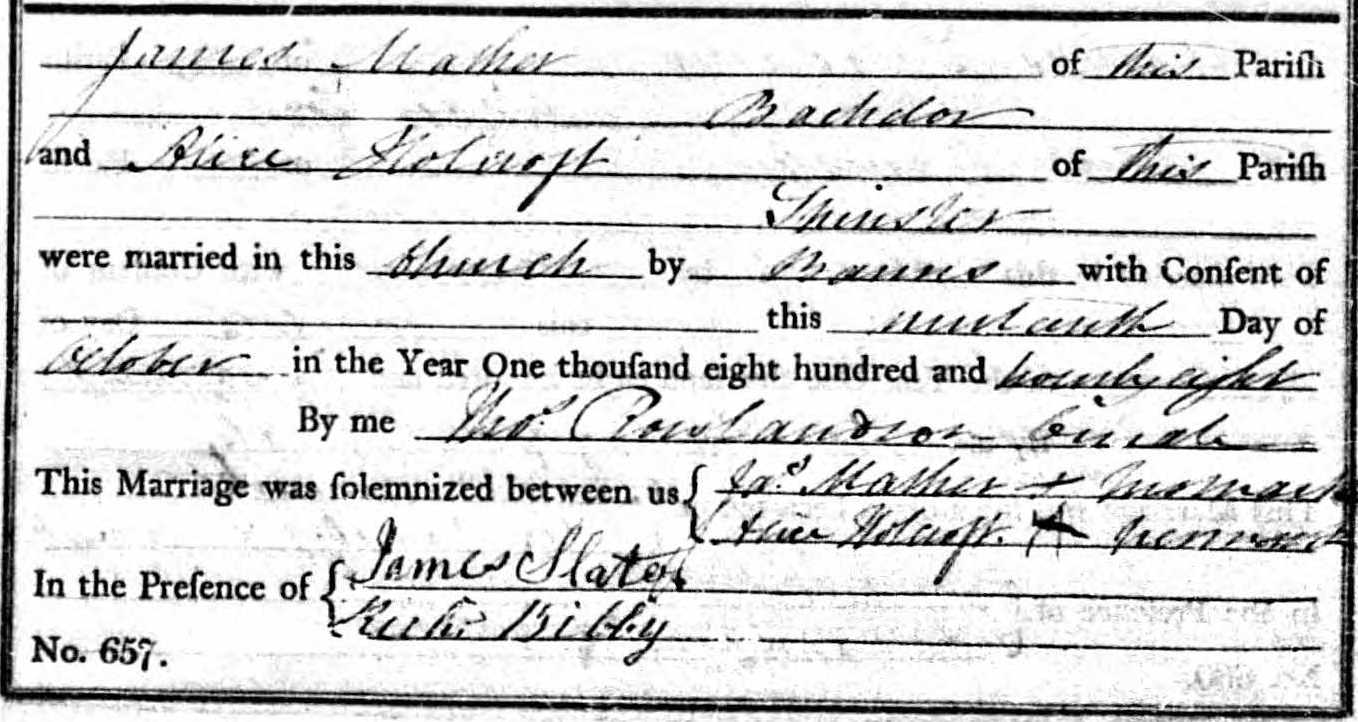 James Mather of this Pariſh
Bachelor
and Alice Holcroft of this Pariſh
Spinster
were married in this Church by Banns with Conſent of
this nineteenth Day of
October in the Year One thouſand eight hundred and twenty eight
By me Thos. Rowlandson Curate
This Marriage was ſolemnized between us { Jas. Mather + his mark
Alice Holcroft. + her mark
In the Preſence of { James Slater
Bibby
No. 657.